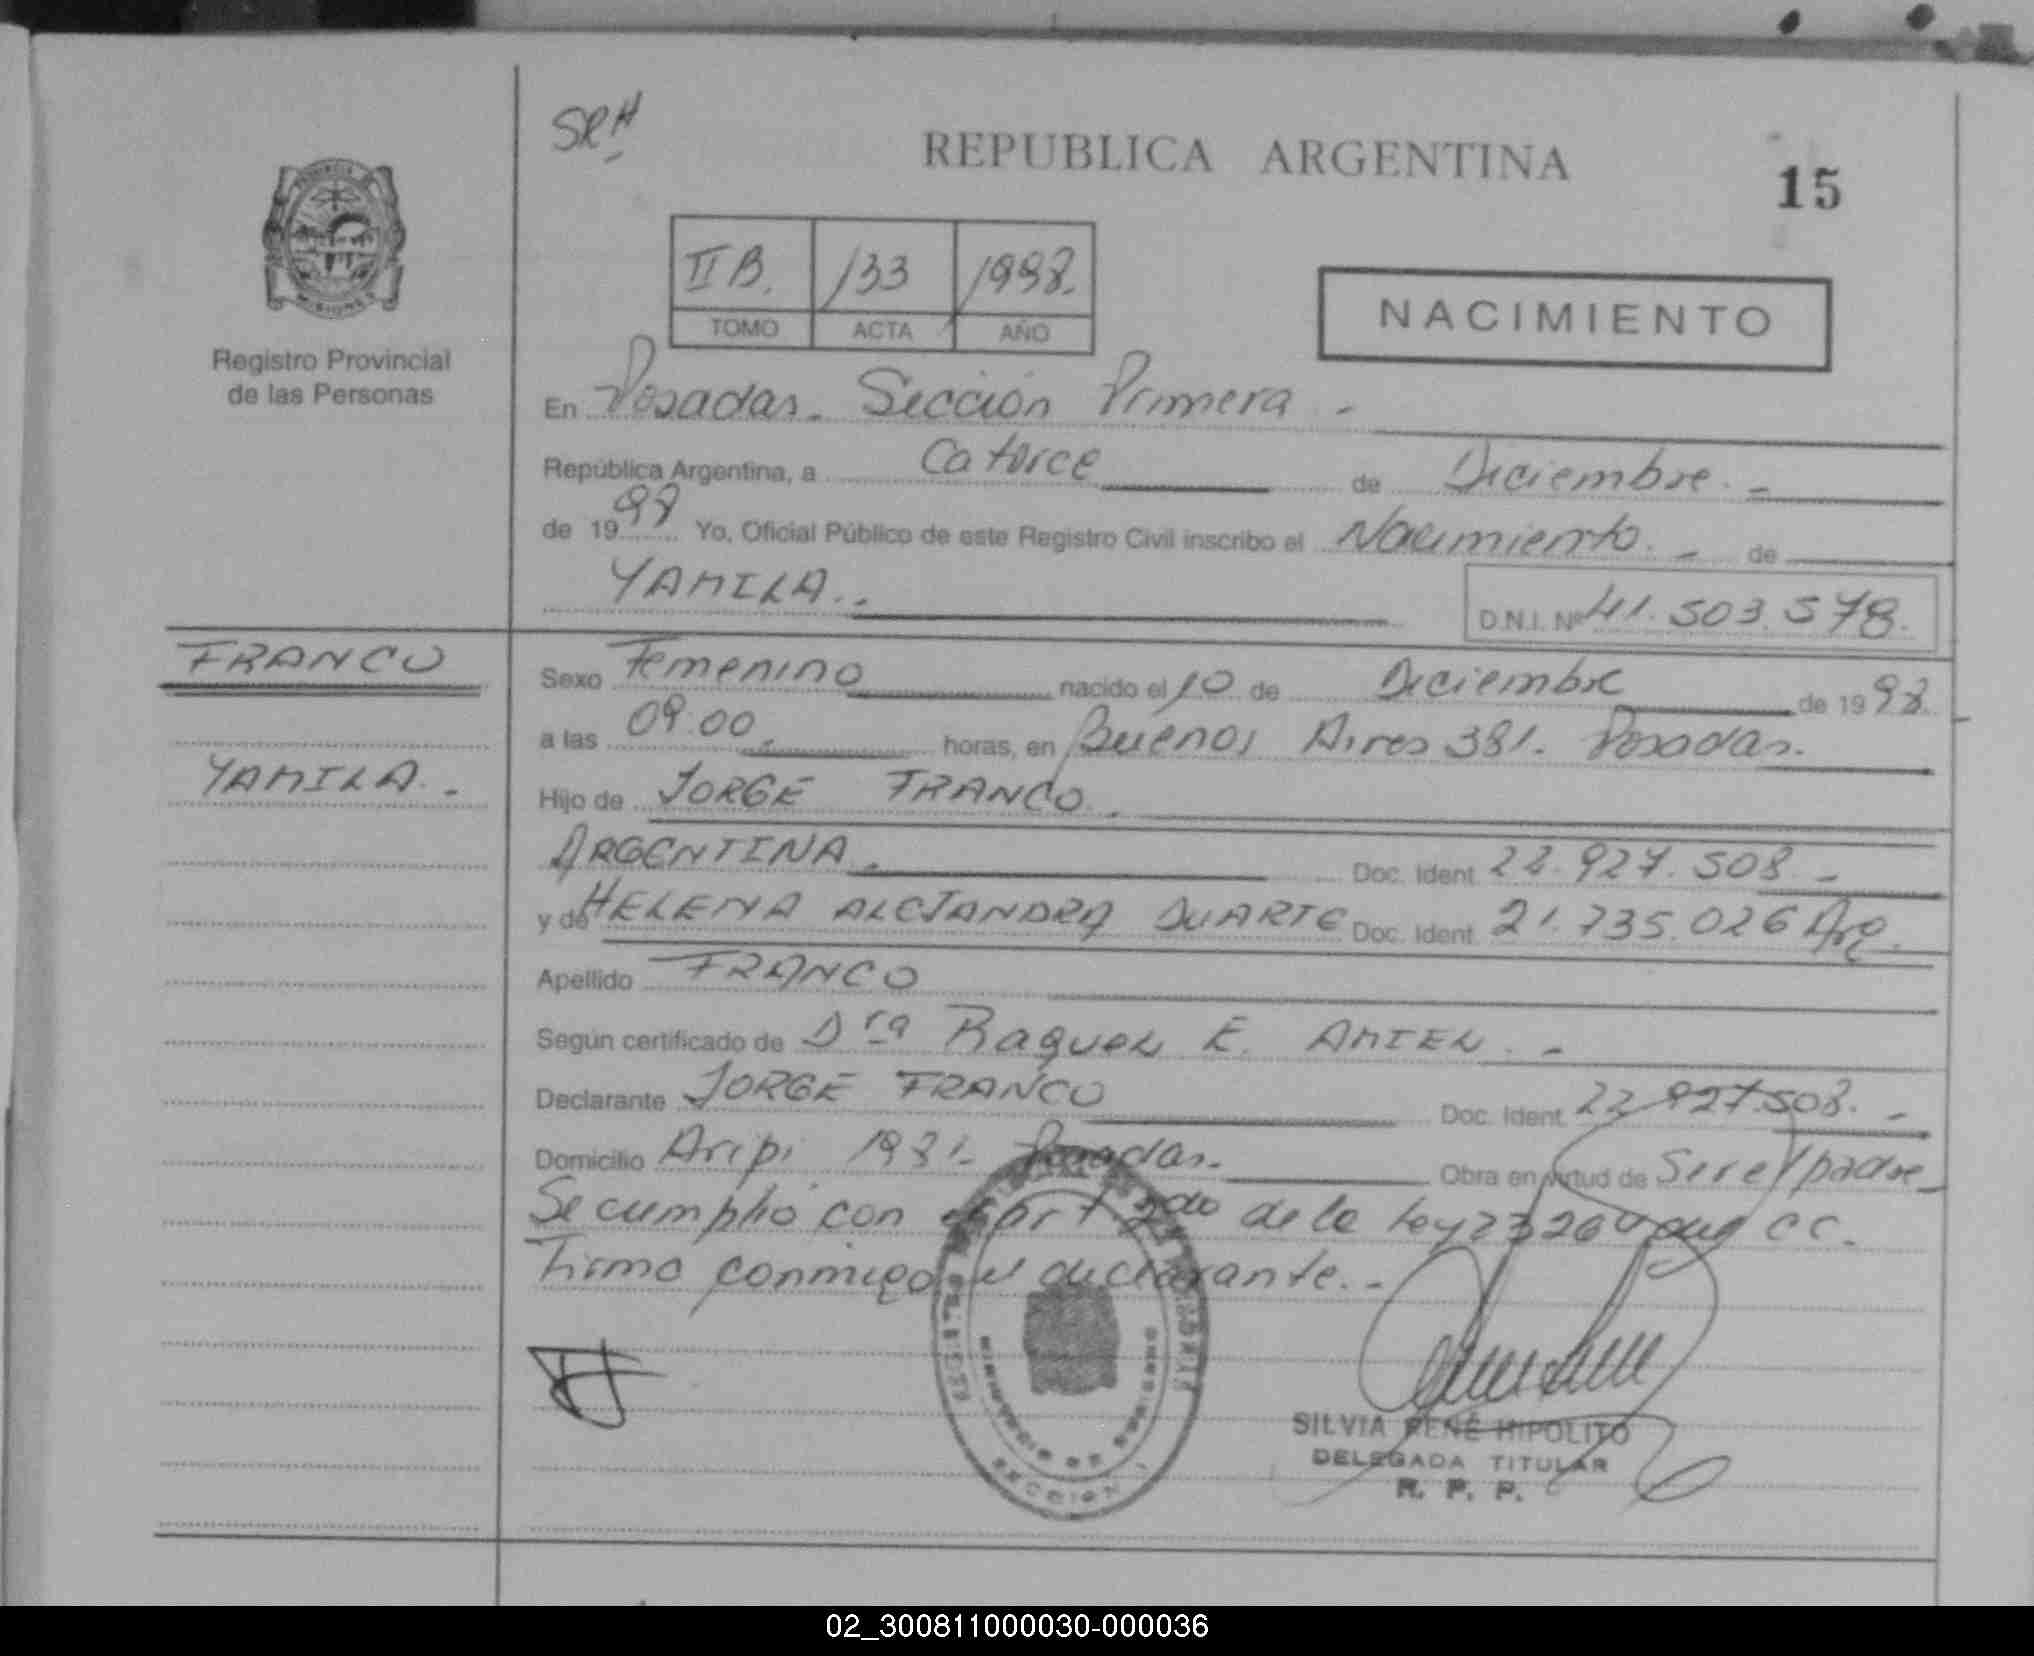 SRH
REPUBLICA ARGENTINA
15
II B. 133 1998.
TOMO ACTA AÑO
NACIMIENTO
Registro Provincial
de las Personas
En Posadas. Sección Primera -
República Argentina, a Catorce de Diciembre. -
de 19 98 Yo, Oficial Público de este Registro Civil inscribo el Nacimiento. - de
YAMILA.. D.N.I. Nº 41.503.578.
FRANCO
YAMILA. -
Sexo Femenino nacido el 10 de Diciembre de 19 98
a las 09:00. horas, en Buenos Aires 381. Posadas.
Hijo de JORGE FRANCO.
ARGENTINA. Doc. Ident. 22.927.508. -
y de HELENA ALEJANDRA DUARTE Doc. Ident. 21.735.026 Arg.
Apellido FRANCO
Según certificado de Dra Raquel E. AMIEL. -
Declarante JORGE FRANCO Doc. Ident. 22.927.508. -
Domicilio Aripi 1981. Posadas. Obra en virtud de Ser el padre -
Se cumplió con el art 2do de la Ley 23264 del CC.
Firma conmigo el declarante. -
MINISTERIO DE GOBIERNO
SECCION 1
SILVIA RENÉ HIPOLITO
DELEGADA TITULAR
R. P. P.
02_300811000030-000036